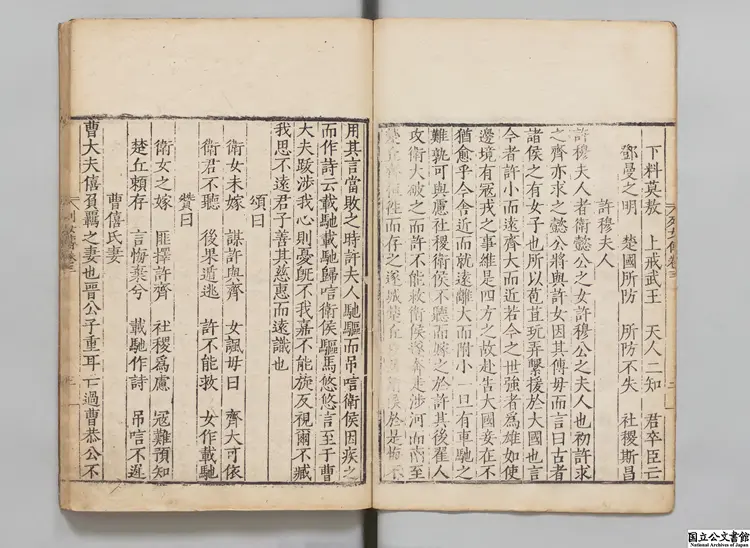 下料莫敖　上戒武王　天人二知　君卒臣亡
鄧曼之明　楚國所防　所防不失　社稷斯昌
許穆夫人
許穆夫人者衛懿公之女許穆公之夫人也初許求
之齊亦求之懿公將與許女因其傅母而言曰古者
諸侯之有女子也所以苞苴玩弄繫援於大國也言
今者許小而遠齊大而近若今之世強者爲雄如使
邊境有寇戎之事維是四方之故赴告大國妾在不
猶愈乎今舍近而就遠離大而附小一旦有車馳之
難孰可與慮社稷衛侯不聽而嫁之於許其後翟人
攻衛大破之而許不能救衛侯遂奔走涉河而南至
楚丘齊桓往而存之遂城楚丘衛侯於是悔不
用其言當敗之時許夫人馳驅而吊唁衛侯因疾之
而作詩云載馳載驅歸唁衛侯驅馬悠悠言至于曹
大夫跋涉我心則憂旣不我嘉不能旋反視爾不臧
我思不遠君子善其慈惠而遠識也
頌曰
衛女未嫁　謀許與齊　女諷母曰　齊大可依
衛君不聽　後果遁逃　許不能救　女作載馳
贊曰
衛女之嫁　匪擇許齊　社稷爲慮　寇難預知
楚丘賴存　言悔棄兮　載馳作詩　吊唁不遲
曹僖氏妻
曹大夫僖負羈之妻也晉公子重耳亡過曹恭公不
列女傳卷三
国立公文書館
National Archives of Japan